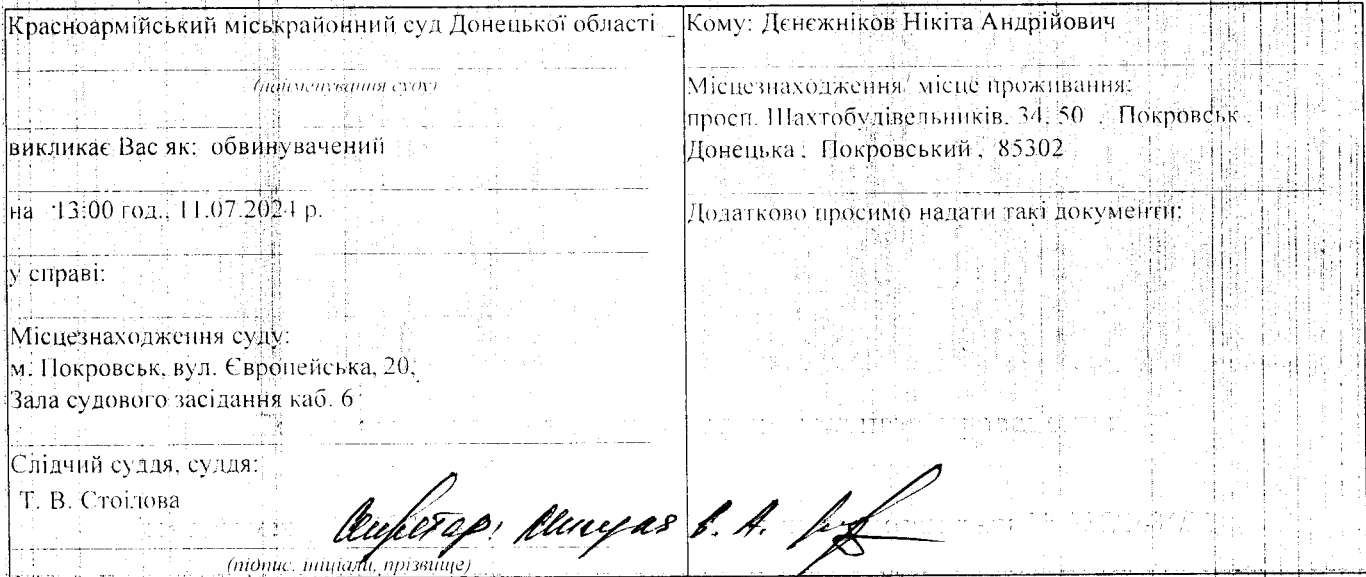 Красноармійський міськрайонний суд Донецької області
(найменування суду)
викликає Вас як: обвинувачений
на 13:00 год., 11.07.2024 р.
у справі:
Місцезнаходження суду:
м. Покровськ, вул. Європейська, 20,
Зала судового засідання каб. 6
Слідчий суддя, суддя:
Т. В. Стоілова
Секретар: В. А.
(підпис, ініціали, прізвище)
Кому: Дєнєжніков Нікіта Андрійович
Місцезнаходження/ місце проживання:
просп. Шахтобудівельників, 34, 50 , Покровськ ,
Донецька , Покровський , 85302
Додатково просимо надати такі документи: